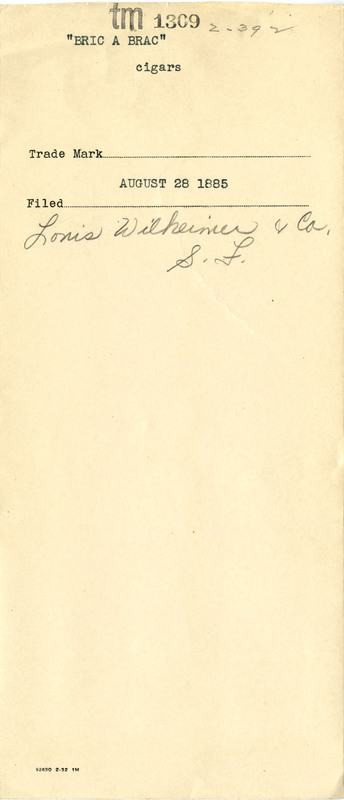 tm 1309 2-392
"BRIC A BRAC"
cigars
Trade Mark
AUGUST 28 1885
Filed
Louis Wilheimer & Co.
S. F.
92650 2-32 1M